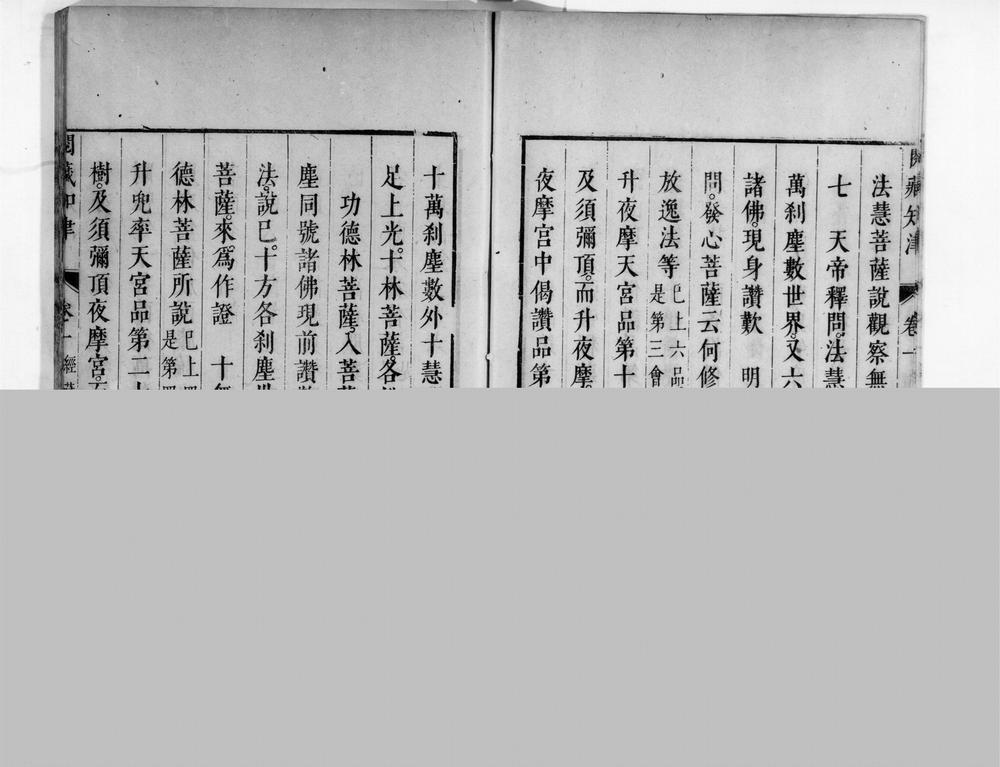 閱藏知津 卷一
法慧菩薩說觀察無
七　天帝釋問。法慧
萬刹塵數世界。又六
諸佛。現身讚歎　明
問。發心菩薩云何修
放逸法等 已上六品是第三會
升夜摩天宮品第十
及須彌頂。而升夜摩。
夜摩宮中偈讚品第
十萬刹塵數外十慧
足上光。十林菩薩。各
功德林菩薩。入菩
塵同號諸佛現前讚
法。說已。十方各刹塵世
菩薩。來。爲作證　十無
德林菩薩所說 已上四是第四
升兜率天宮品第二十
樹。及須彌頂夜摩宮。
閱藏知津 卷一 經